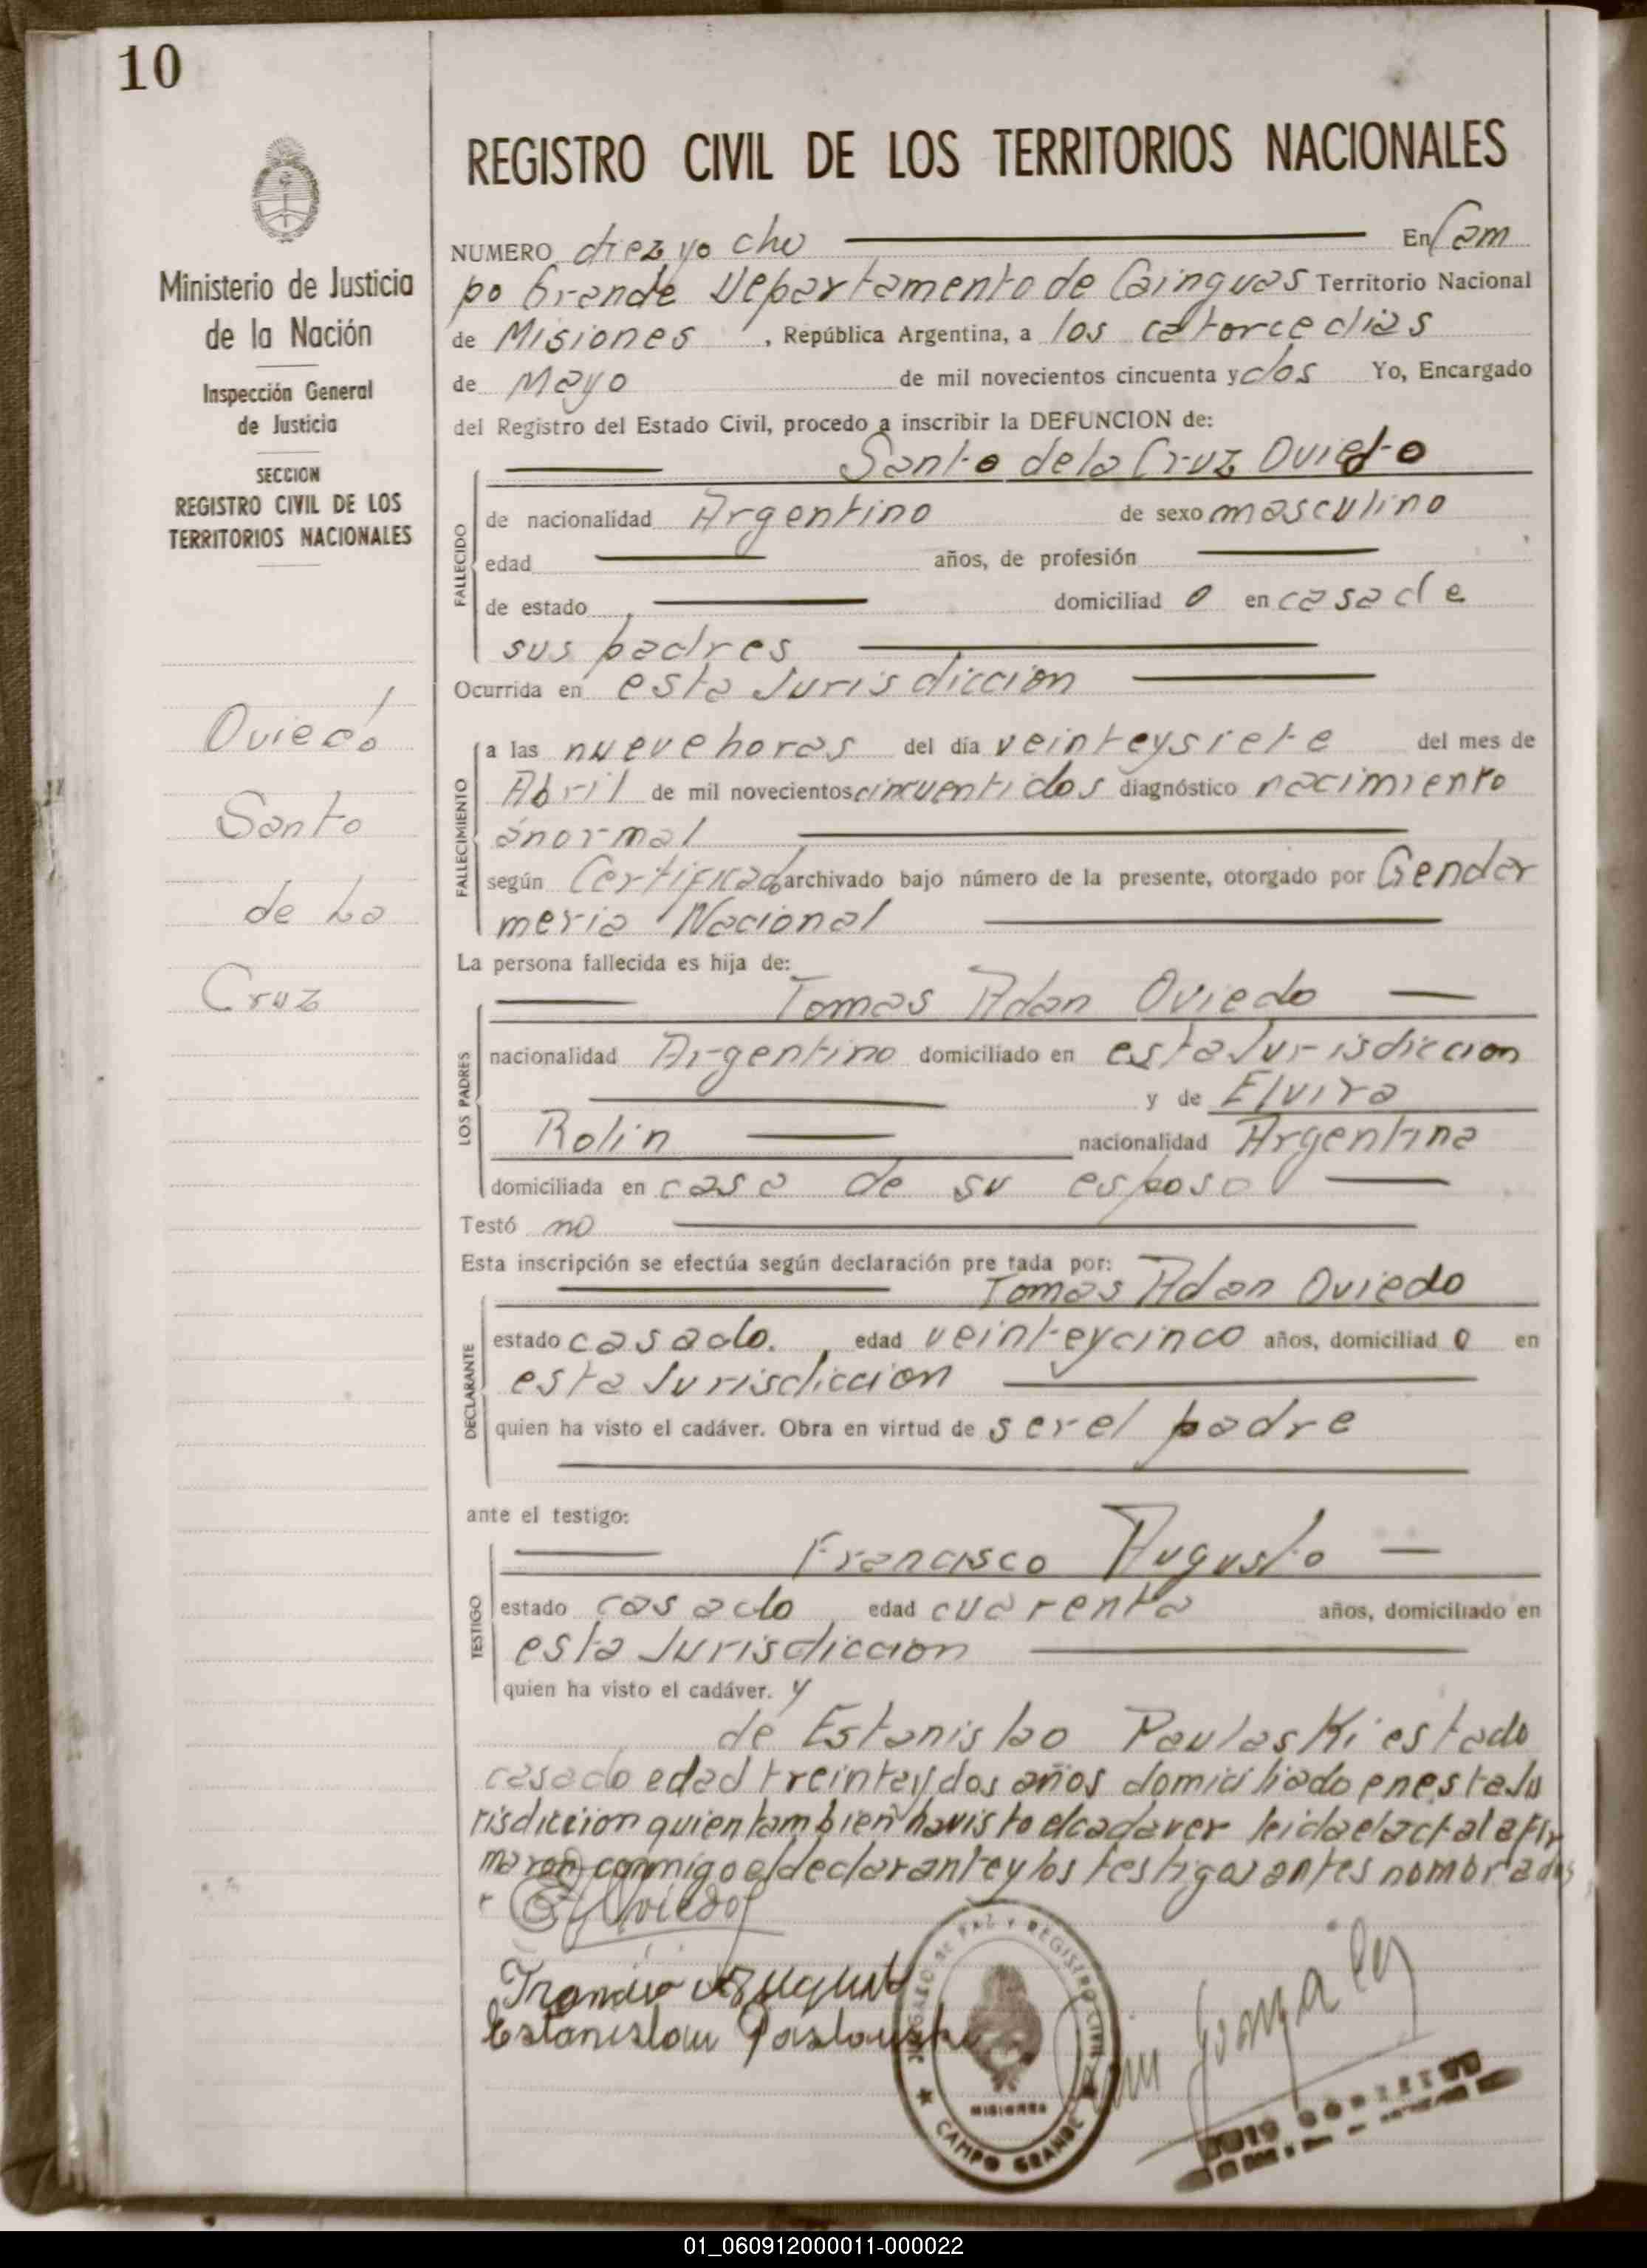 10
REGISTRO CIVIL DE LOS TERRITORIOS NACIONALES
Ministerio de Justicia
de la Nación
Inspección General
de Justicia
SECCION
REGISTRO CIVIL DE LOS
TERRITORIOS NACIONALES
Oviedo
Santo
de La
Cruz
NUMERO diez yo cho En Cam
po Grande Departamento de Cainguas Territorio Nacional
de Misiones, República Argentina, a los catorce dias
de Mayo de mil novecientos cincuenta y dos Yo, Encargado
del Registro del Estado Civil, procedo a inscribir la DEFUNCION de:
Santo de la Cruz Oviedo
FALLECIDO
de nacionalidad Argentino de sexo masculino
edad años, de profesión
de estado domiciliad o en casa de
sus padres
Ocurrida en esta Jurisdiccion
FALLECIMIENTO
a las nueve horas del día veinteysiete del mes de
Abril de mil novecientos cincuentidos diagnóstico nacimiento
anormal
según Certificado archivado bajo número de la presente, otorgado por Gendar
meria Nacional
La persona fallecida es hija de:
Tomas Adan Oviedo
LOS PADRES
nacionalidad Argentino domiciliado en esta Jurisdiccion
y de Elvira
Rolin nacionalidad Argentina
domiciliada en casa de su esposo
Testó no
Esta inscripción se efectúa según declaración pre tada por:
Tomas Adan Oviedo
DECLARANTE
estado casado. edad veinteycinco años, domiciliad o en
esta Jurisdiccion
quien ha visto el cadáver. Obra en virtud de ser el padre
ante el testigo:
Francisco Augusto
TESTIGO
estado casado edad cuarenta años, domiciliado en
esta Jurisdiccion
quien ha visto el cadáver. y
de Estanislao Paulaski estado
casado edad treintaydos años domiciliado en esta Ju
risdiccion quien tambien ha visto el cadaver leida el acta la fir
maron conmigo el declarante y los testigos antes nombrados
Oviedo
Estanislau
JUZGADO DE PAZ Y REGISTRO CIVIL
MISIONES
CAMPO GRANDE
01_060912000011-000022